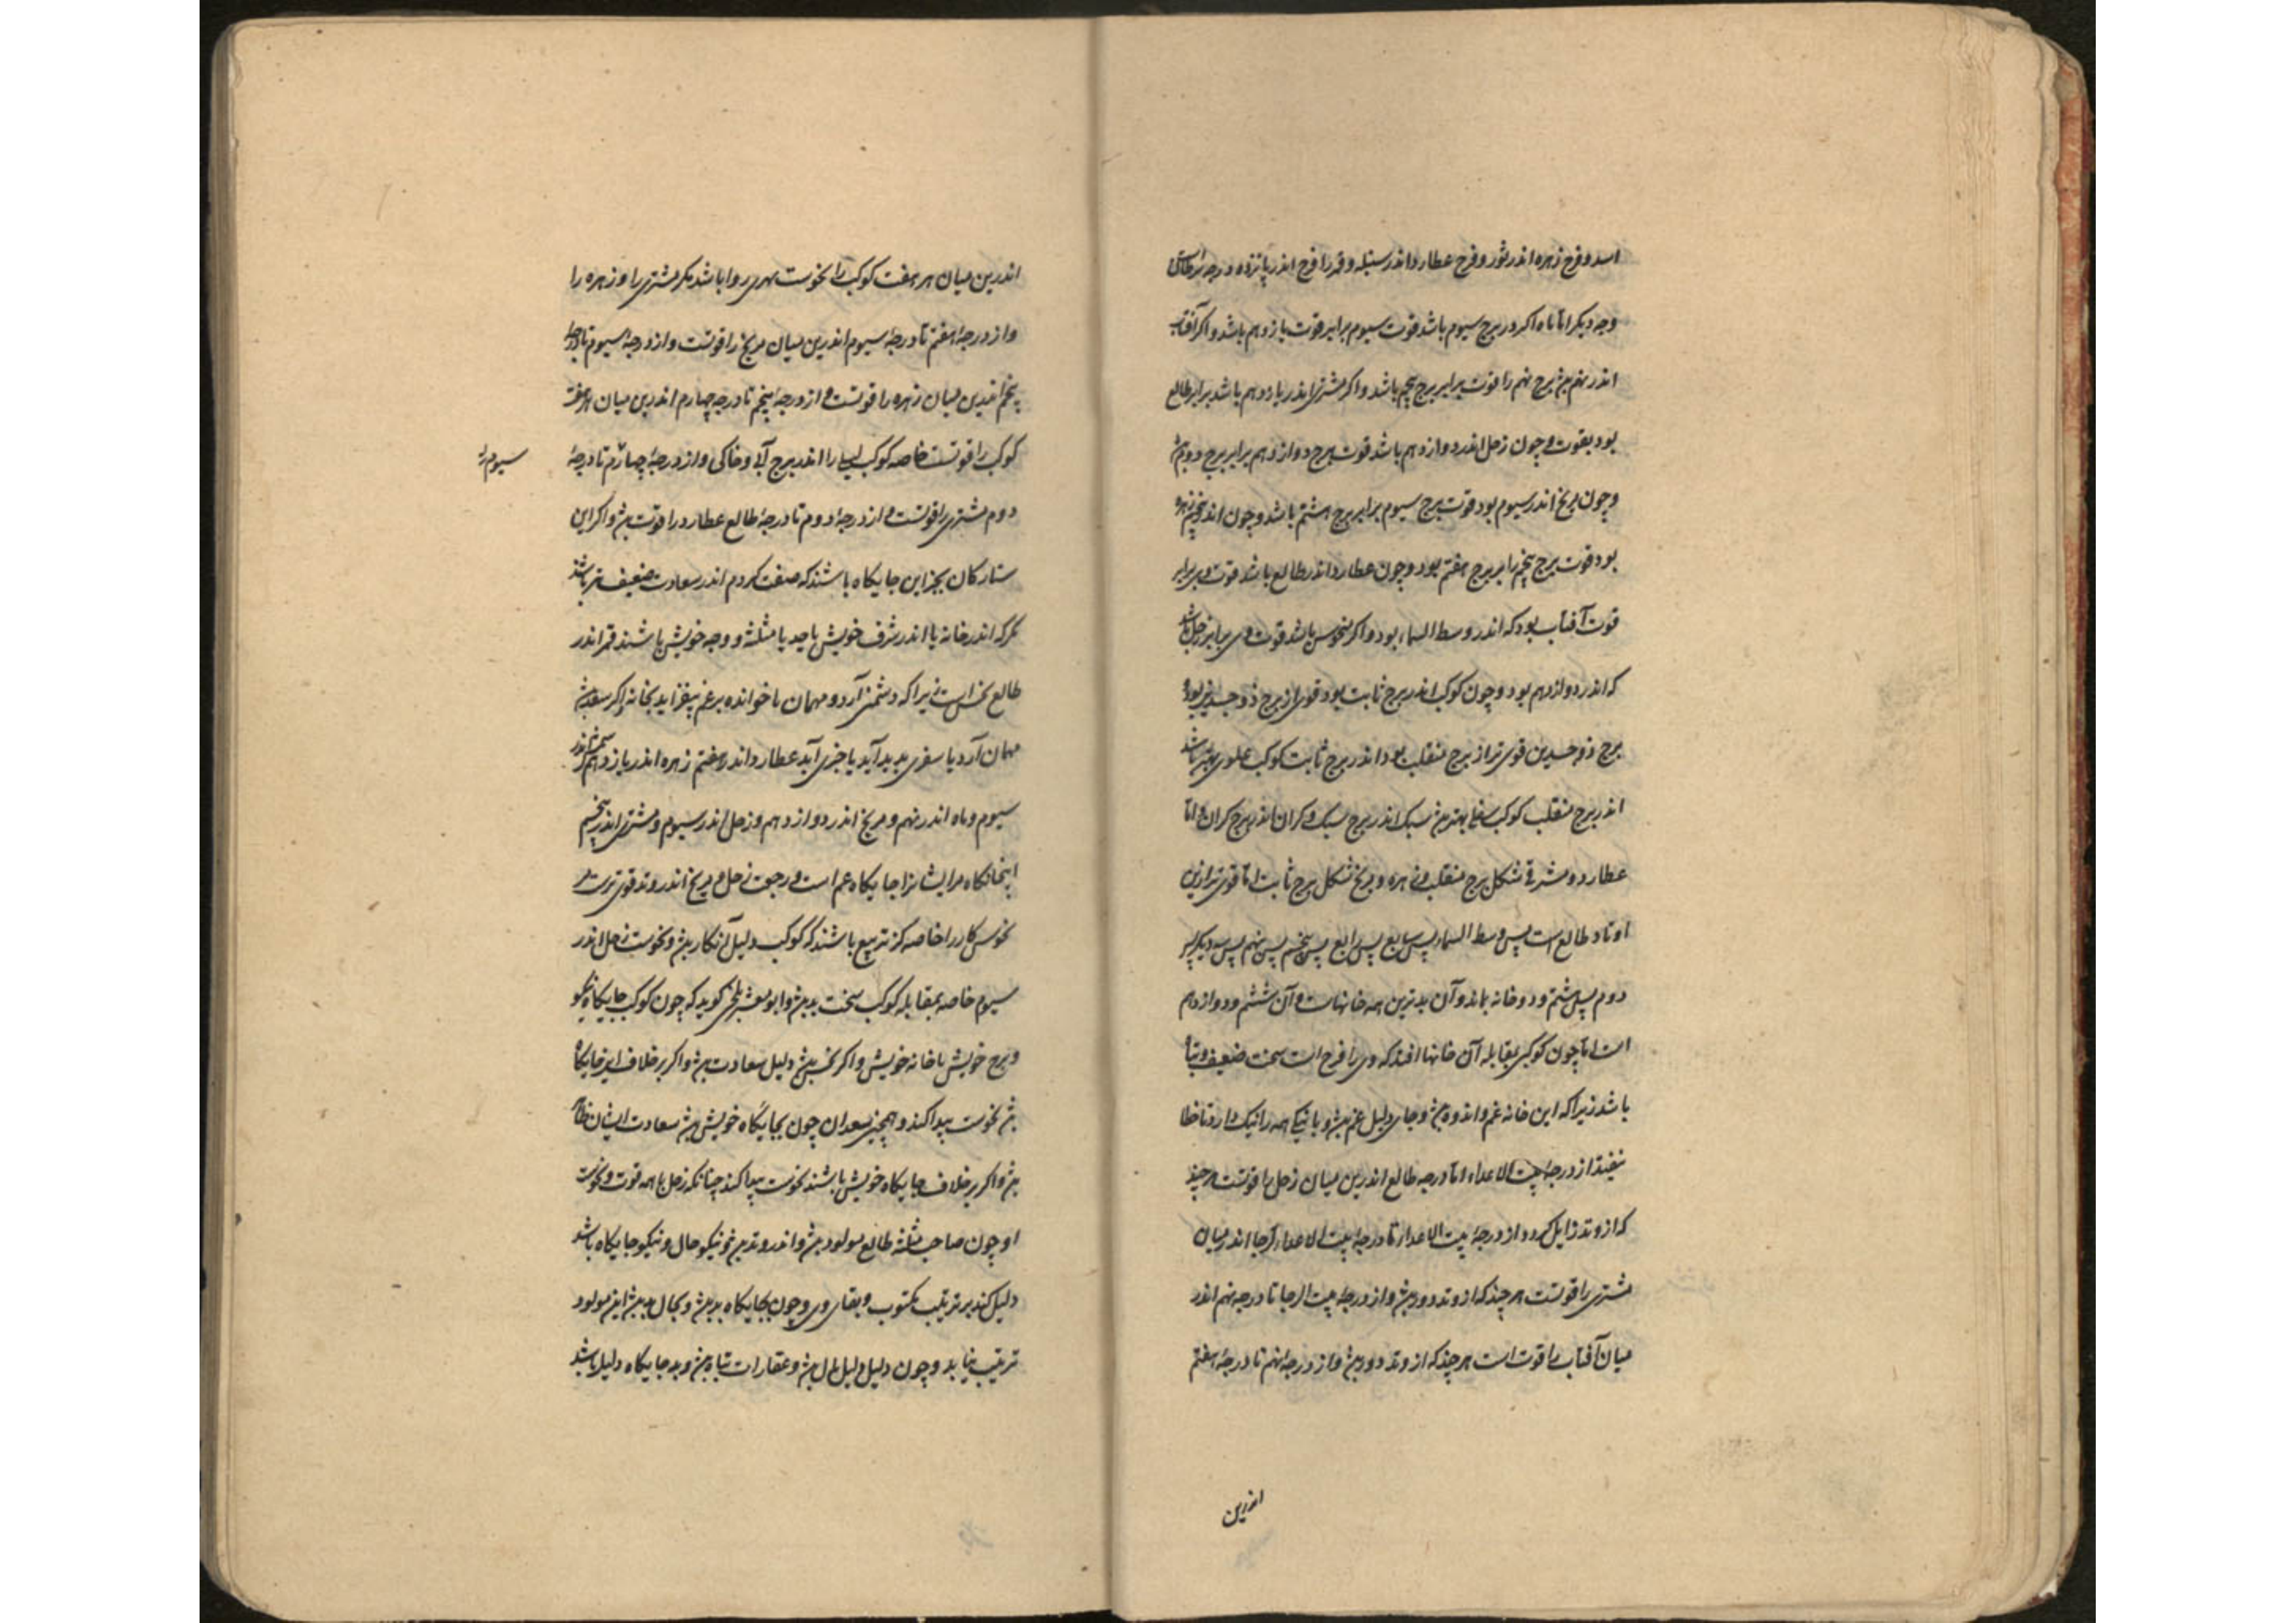 اسد و فرح زهره اندر ثور و فرح عطارد اندر سنبله و قمر را فرح اندر پانزده درجه سرطان
وجه دیکر اما ماه اکر در برج سیوم باشد قوت سیوم برابر قوت یازدهم باشد و اکر آفتاب
اندر نهم بود برج نهم را قوت برابر برج پنجم باشد و اکر مشتری اندر یازدهم باشد برابر طالع
بود بقوت و چون زحل اندر دوازدهم باشد قوت برج دوازدهم برابر برج دوم
و چون مریخ اندر سیوم بود قوت برج سیوم برابر برج هشتم باشد و چون اندر پنجم زهره
بود قوت برج پنجم برابر برج هفتم بود و چون عطارد اندر طالع باشد قوت وی برابر
قوت آفتاب بود که اندر وسط السماء بود و اکر منحوس باشد قوت وی برابر زحل باشد
که اندر دوازدهم بود و چون کوکب اندر برج ثابت بود قوی از برج ذوجسدین بود و
برج ذوجسدین قوی تر از برج منقلب بود اندر برج ثابت کوکب علوی بهتر باشد
اندر برج منقلب کوکب سفلی بهتر سبک اندر برج سبک و کران اندر برج کران و اما
عطارد و مشتری شکل برج منقلب و زهره و مریخ شکل برج ثابت اما قوی ترازین
اوتاد طالع است پس وسط السماء پس سابع پس رابع پس پنجم پس نهم پس سه دیکر پس
دوم پس هشتم و دو خانه بماند و آن بدترین همه خانهاست و آن ششم و دوازدهم
است اما چون کوکبی بمقابله آن خانها افتد که وی را فرح است سخت ضعیف و تباه
باشد زیرا که این خانه غم و اندوه و جای دلیل غم و با نیکی همه را نیک دارد تا خطا
نیفتد از درجه بیت الاعداء تا درجه طالع اندرین میان زحل را قوتست هر چند
که از وتد زایل کردد از درجه بیت الاعداء تا درجه بیت اندر میان
مشتری را قوتست هر چند که از وتد دور و از درجه بیت الرجا تا درجه نهم اندر
میان آفتاب را قوت است هر چند که از وتد دور و از درجه نهم تا درجه هفتم
اندرین
اندرین میان هر هفت کوکب را نحوست روا باشد مکر مشتری را و زهره را
و از درجه هفتم تا درجه سیوم اندرین میان مریخ را قوتست و از درجه سیوم تا درجه
پنجم اندرین میان زهره را قوتست و از درجه پنجم تا درجه چهارم اندرین میان هر هفت
کوکب را قوتست خاصه کوکب را اندر برج آبی و خاکی و از درجه چهارم تا درجه
سیوم را
دوم مشتری را قوتست و از درجه دوم تا درجه طالع عطارد را قوت و اکر این
ستارکان بجز این جایکاه باشند که صفت کردم اندر سعادت ضعیف تر باشند
مکر که اندر خانه یا اندر شرف خویش یا حد یا مثلثه و وجه خویش باشند قمر اندر
طالع نحس است زیرا که دشمنی آرد و مهمان ناخوانده بر غم بیفزاید بخانه و اکر سعد
مهمان آرد یا سفری پدید آید یا خبری آید عطارد اندر هفتم زهره اندر یازدهم
سیوم و ماه اندر نهم و مریخ اندر دوازدهم و زحل اندر سیوم و مشتری اندر پنجم
اینجایکاه مر ایشانرا جایکاه غم است و رجعت زحل و مریخ اندر وتد قوی ترست
نحوس کار را خاصه کز تربیع باشند که کوکب دلیل آن کار و نحوست زحل اندر
سیوم خاصه بمقابله کوکب سخت بد و ابو معشر بلخی کوید که چون کوکب جایکاه
و برج خویش یا خانه خویش و اکر نحس دلیل سعادت و اکر بر خلاف این جایکاه
نحوست پیدا کند و همچنین سعدان چون بجایکاه خویش سعادت ایشان
و اکر بر خلاف جایکاه خویش باشند نحوست پیدا کند چنانکه زحل با همه قوت و نحوست
او چون صاحب مثلثه طالع مولود و اندر وتد نیکو حال و نیکو جایکاه باشد
دلیل کند بر تربیت مکتوب و بقای وی و چون بجایکاه بد و بحال بد این مولود
تربیت نیابد و چون دلیل دلیل مال و عقارات تباه و بد جایکاه دلیل باشد